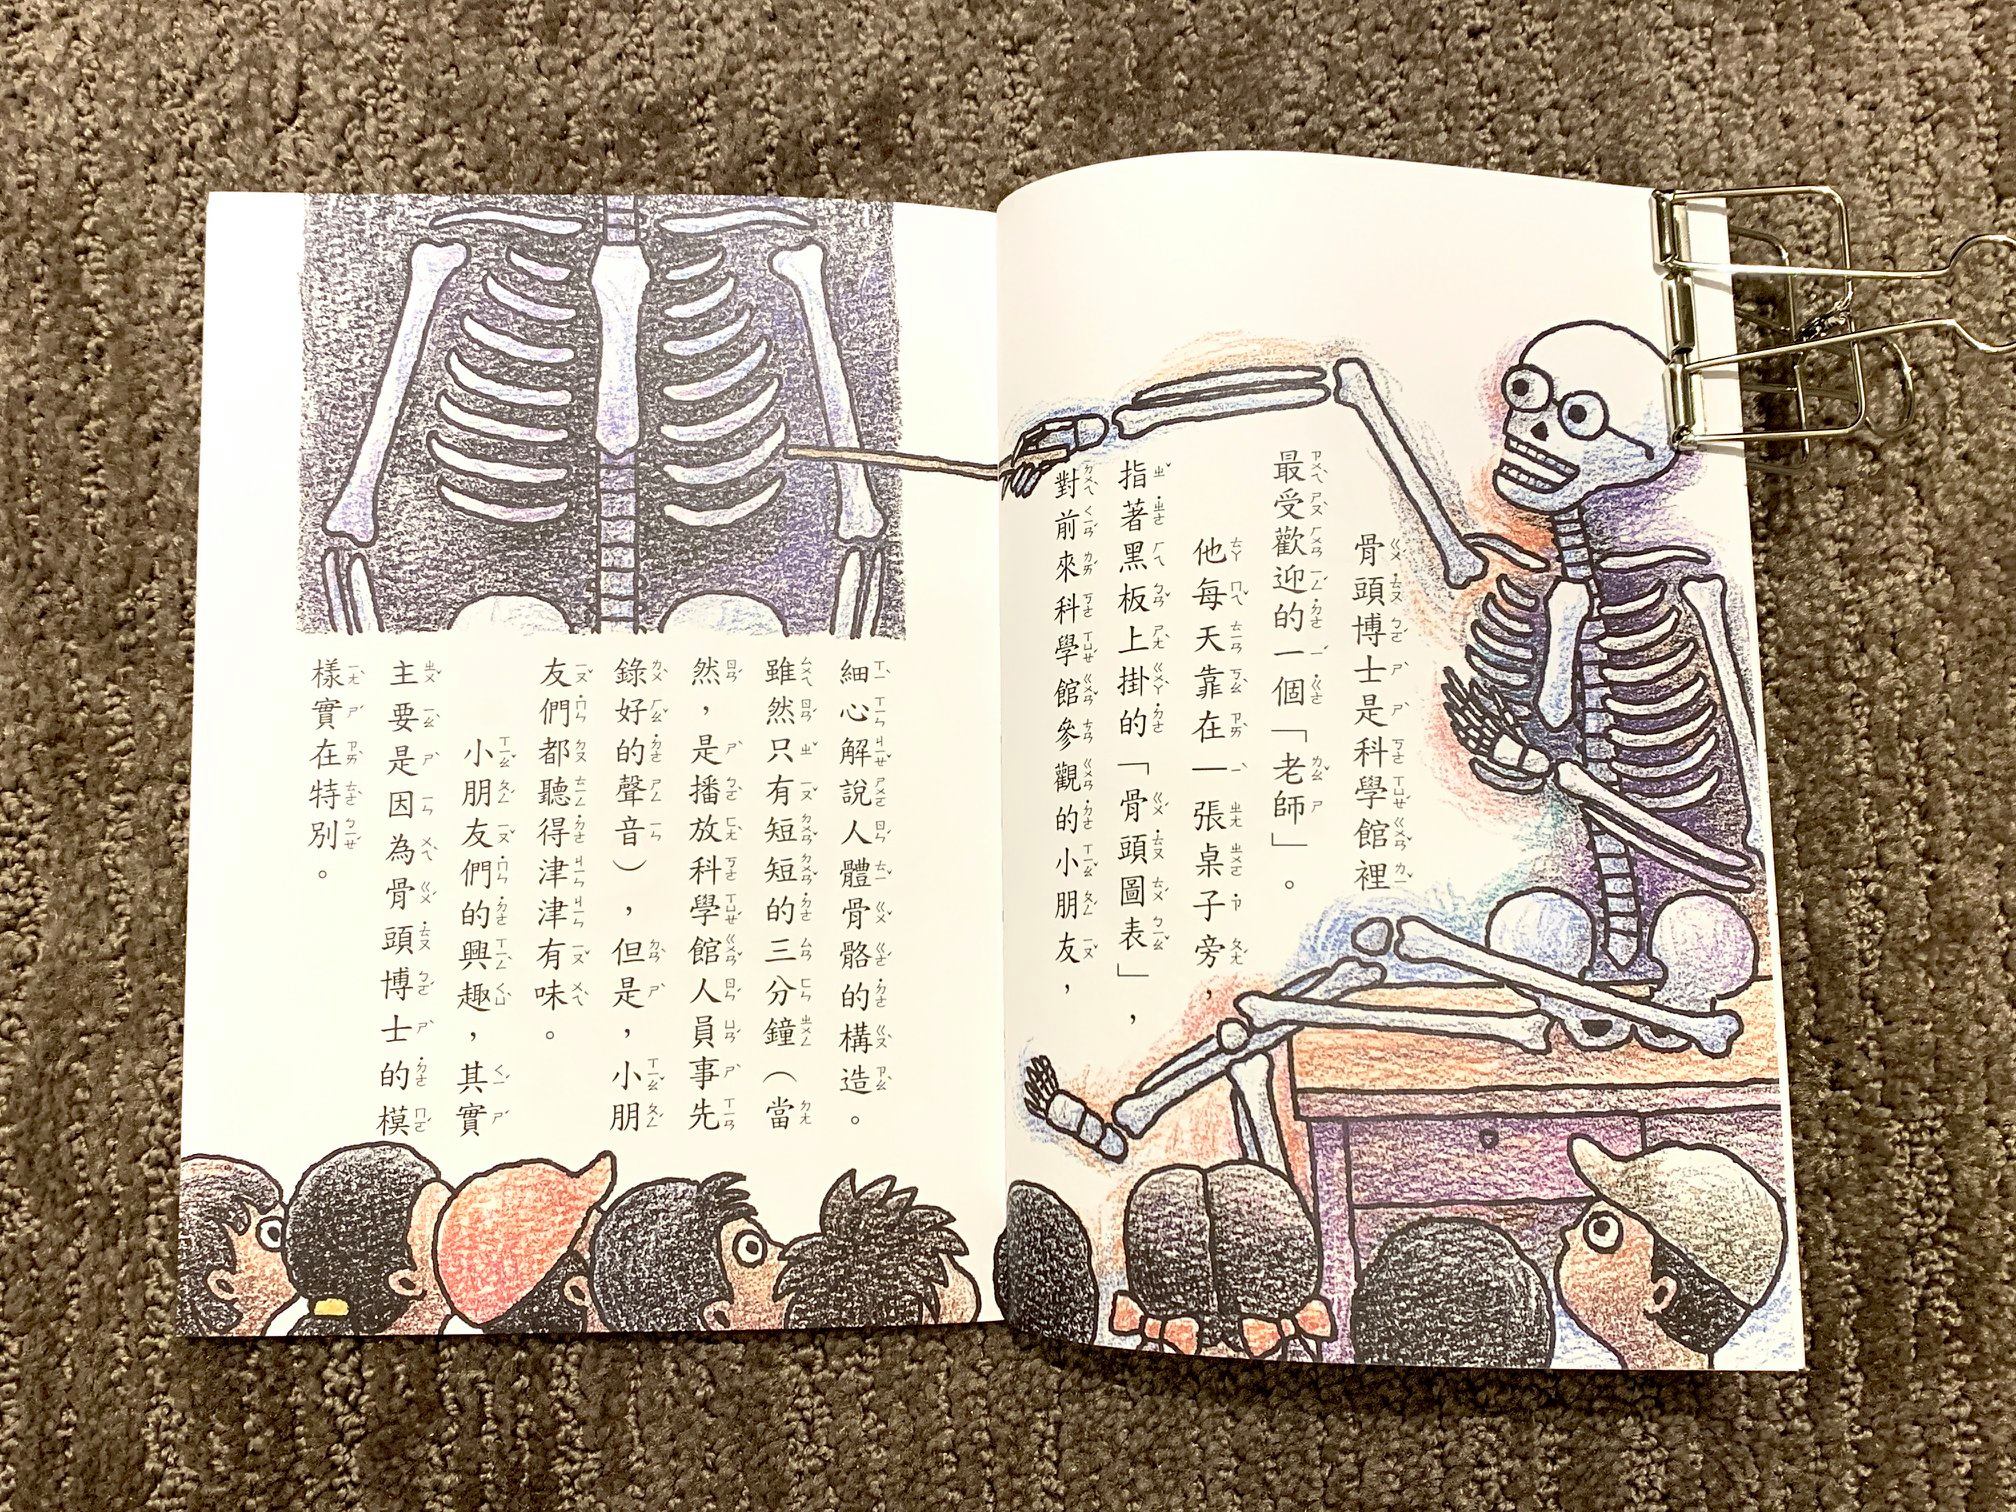 骨頭博士是科學館裡
最受歡迎的一個「老師」。
他每天靠在一張桌子旁，
指著黑板上掛的「骨頭圖表」，
對前來科學館參觀的小朋友，
細心解說人體骨骼的構造。
雖然只有短短的三分鐘（當
然，是播放科學館人員事先
錄好的聲音），但是，小朋
友們都聽得津津有味。
小朋友們的興趣，其實
主要是因為骨頭博士的模
樣實在特別。